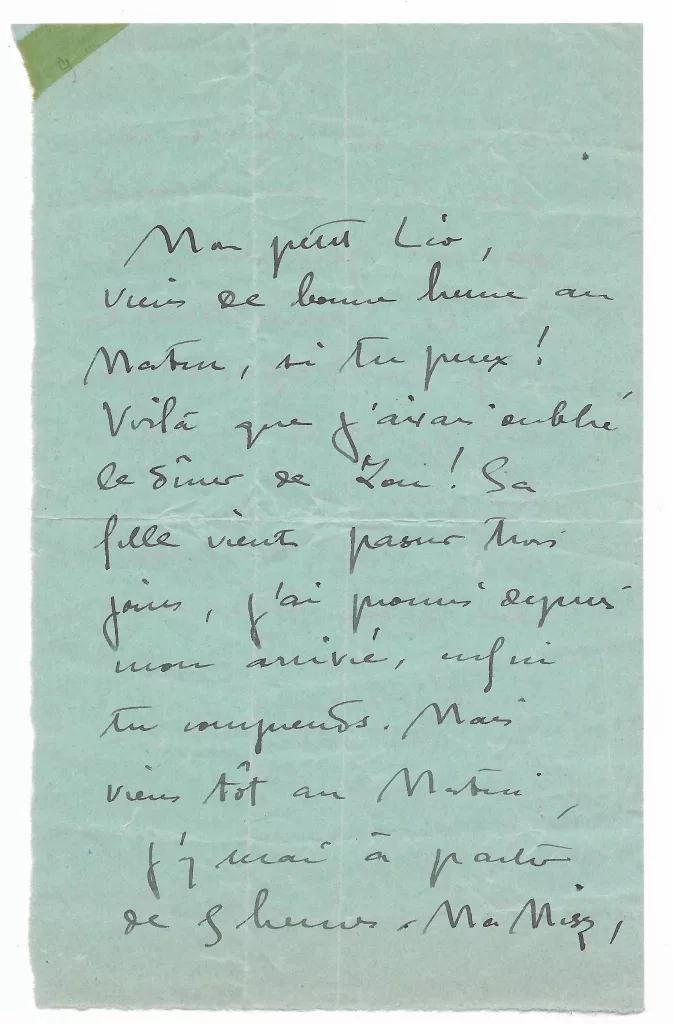 Mon petit Léo,
viens de bonne heure au
Matin, si tu peux !
Voilà que j'avais oublié
le dîner de Zou ! Sa
fille vient passer trois
jours, j'ai promis depuis
mon arrivée, enfin
tu comprends. Mais
viens tôt au Matin,
j'y serai à partir
de 5 heures. Ma Missy,